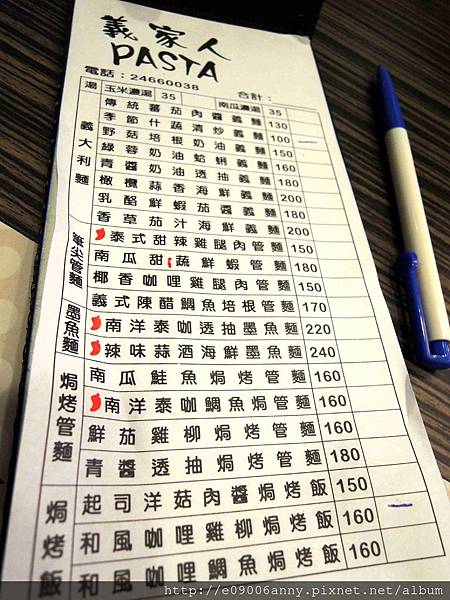 義家人
PASTA
電話：24660038
合計：
湯 玉米濃湯 35 南瓜濃湯 35
義大利麵
傳統蕃茄肉醬義麵 130
季節什蔬清炒義麵 100
野菇培根奶油義麵 150
綠蓉奶油蛤蜊義麵 160
青醬奶油透抽義麵 180
橄欖蒜香海鮮義麵 200
乳酪鮮蝦茄醬義麵 200
香草茄汁海鮮義麵
筆尖管麵
泰式甜辣雞腿肉管麵 150
南瓜甜蔬鮮蝦管麵 180
椰香咖哩雞腿肉管麵 150
義式陳醋鯛魚培根管麵 170
墨魚麵
南洋泰咖透抽墨魚麵 220
辣味蒜酒海鮮墨魚麵 240
焗烤管麵
南瓜鮭魚焗烤管麵 160
南洋泰咖鯛魚焗管麵 160
鮮茄雞柳焗烤管麵 160
青醬透抽焗烤管麵 180
焗烤飯
起司洋菇肉醬焗烤飯 150
和風咖哩雞柳焗烤飯 160
和風咖哩鯛魚焗烤飯 160
http://e09006anny.pixnet.net/album